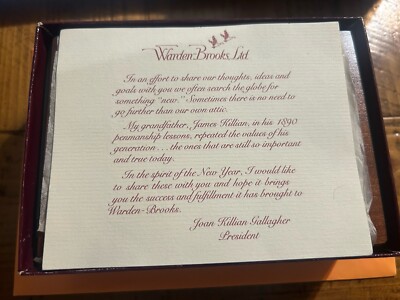 Warden-Brooks, Ltd.
In an effort to share our thoughts, ideas and
goals with you we often search the globe for
something "new." Sometimes there is no need to
go further than our own attic.
My grandfather, James Killian, in his 1890
penmanship lessons, repeated the values of his
generation...the ones that are still so important
and true today.
In the spirit of the New Year, I would like
to share these with you and hope it brings
you the success and fulfillment it has brought to
Warden-Brooks.
Joan Killian Gallagher
President